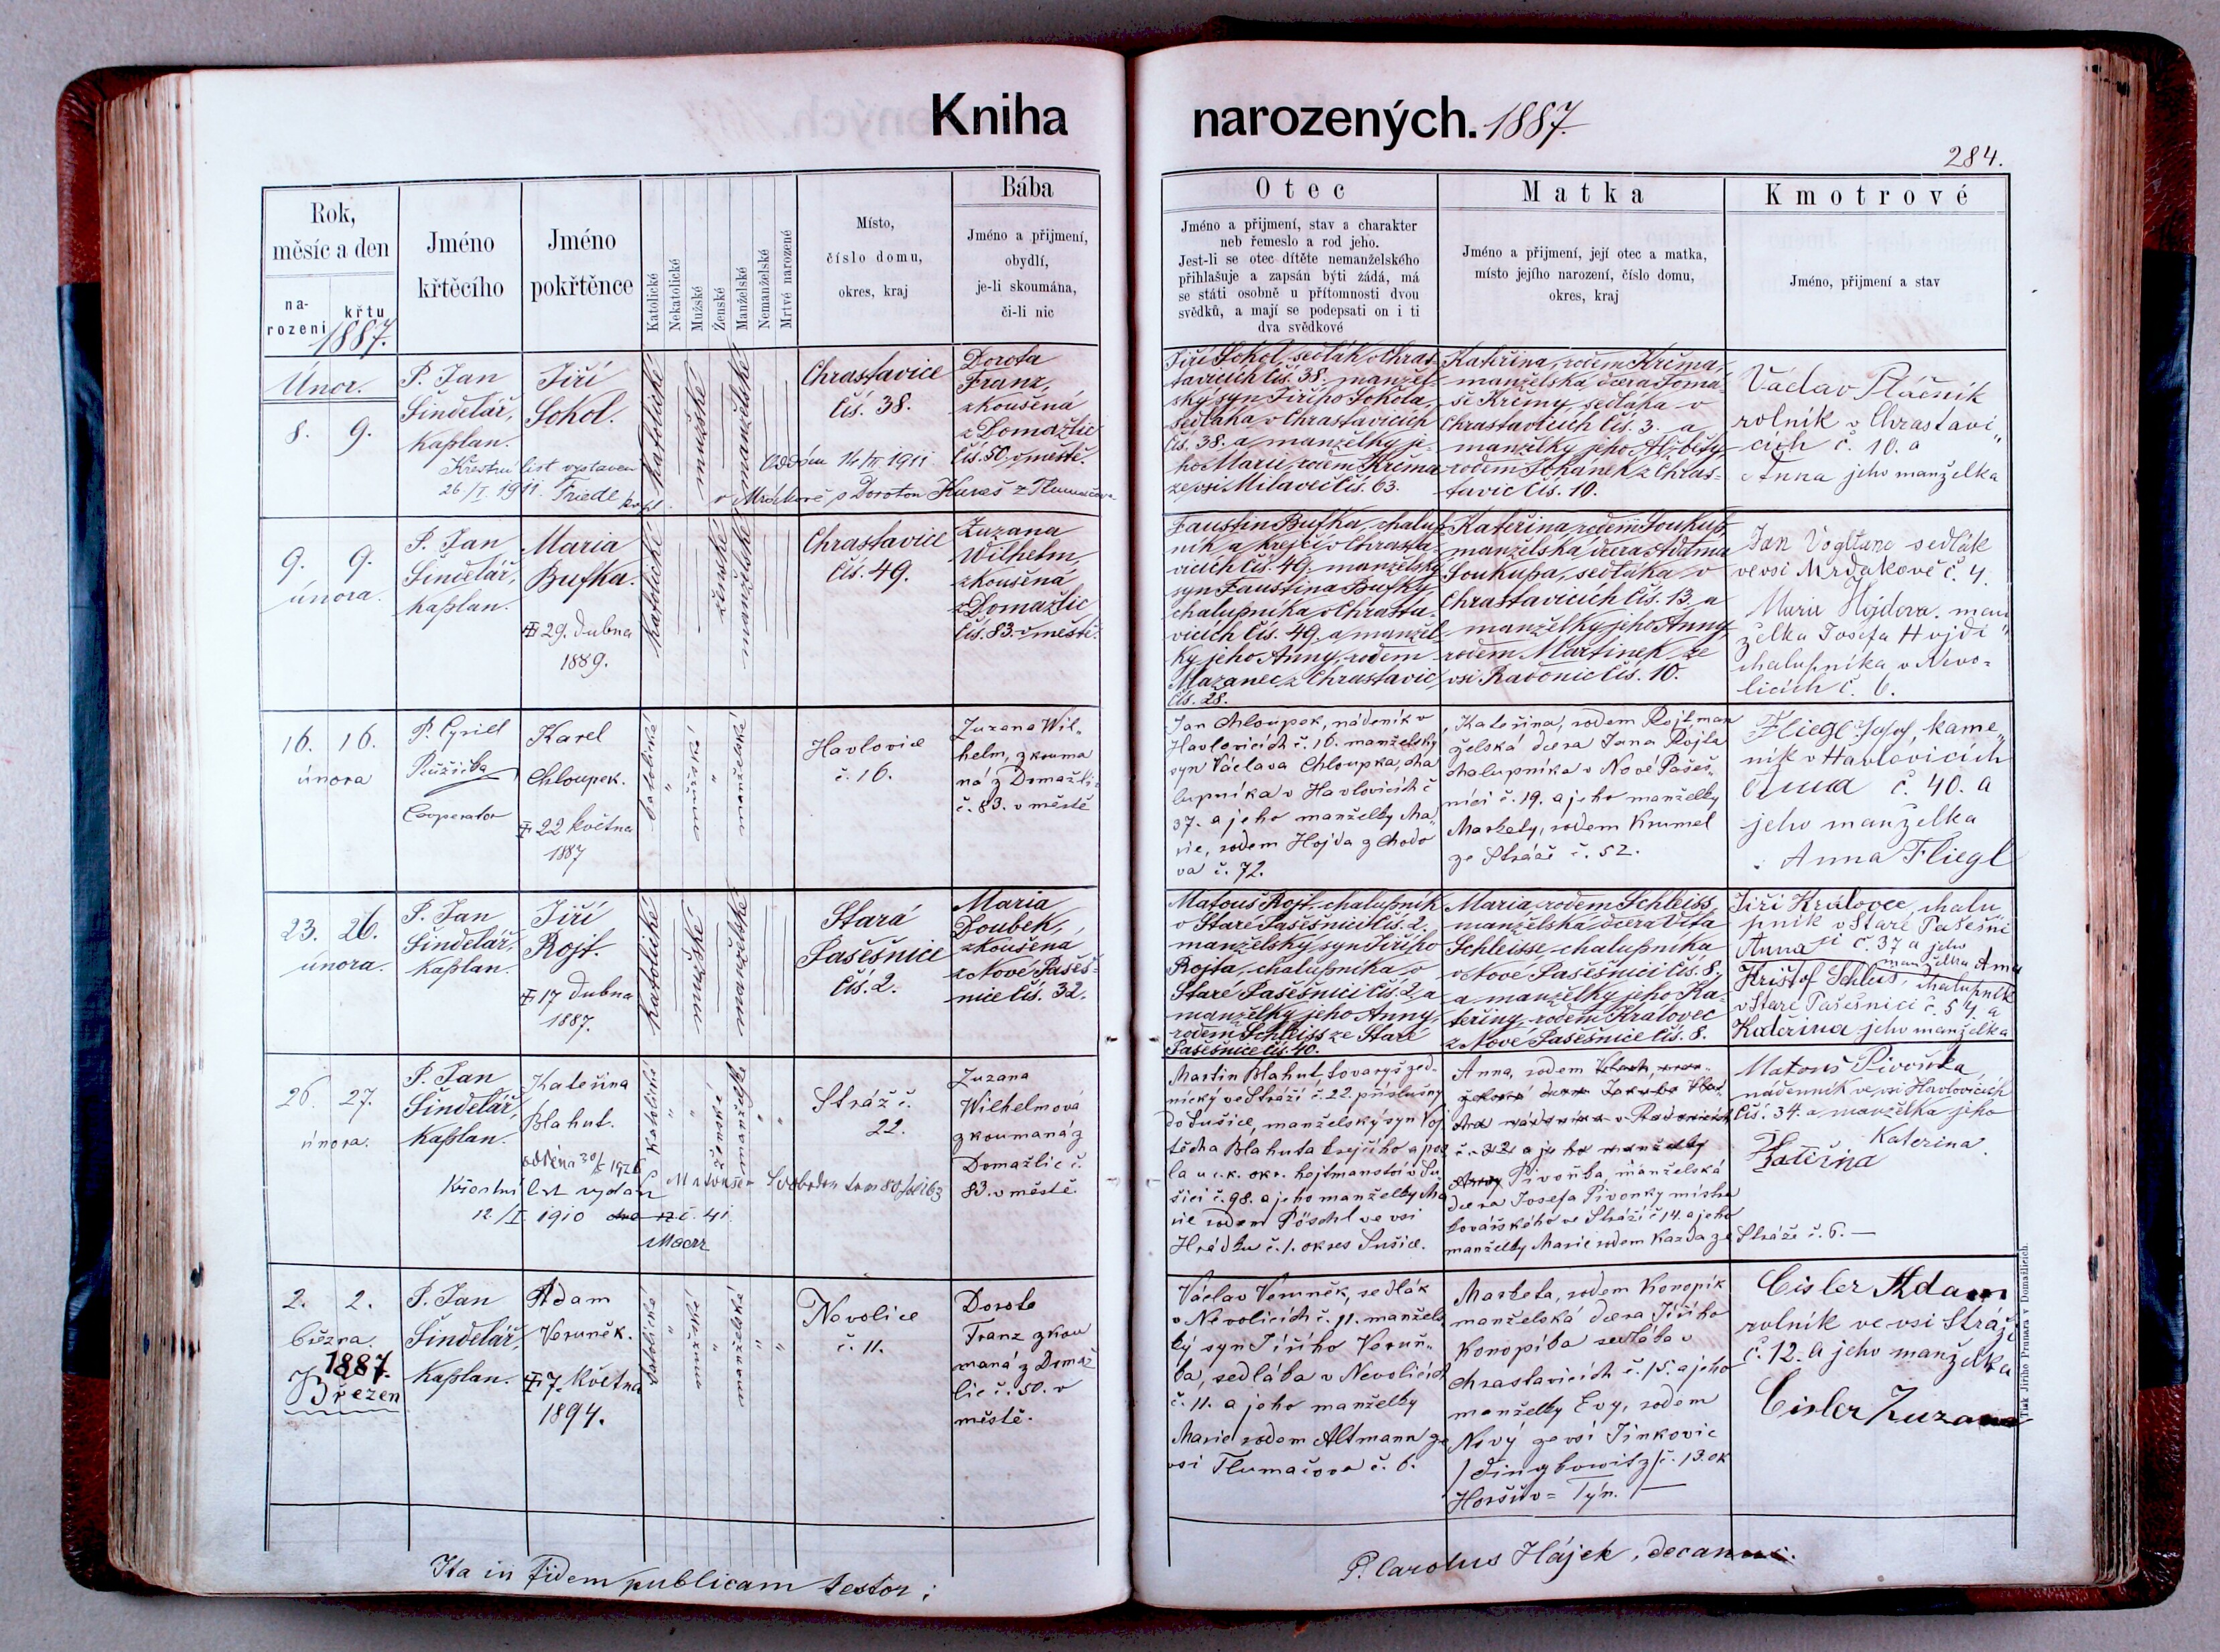 Kniha
narozených. 1887.
284.
Rok,
měsíc a den
na-
rozeni
křtu
1887.
Jméno
křtěcího
Jméno
pokřtěnce
Katolické
Nekatolické
Mužské
Ženské
Manželské
Nemanželské
Mrtvé narozené
Místo,
číslo domu,
okres, kraj
Bába
Jméno a přijmení,
obydlí,
je-li skoumána,
či-li nic
Otec
Jméno a přijmení, stav a charakter
neb řemeslo a rod jeho.
Jest-li se otec dítěte nemanželského
přihlašuje a zapsán býti žádá, má
se státi osobně u přítomnosti dvou
svědků, a mají se podepsati on i ti
dva svědkové
Matka
Jméno a přijmení, její otec a matka,
místo jejího narození, číslo domu,
okres, kraj
Kmotrové
Jméno, přijmení a stav
Únor.
8. 9.
P. Jan
Šindelář,
Kaplan.
Jiří
Sokol.
Křestní list vystaven
26./I 1911. Friedl
katolické
mužské
manželské
Chrastavice
Čís. 38.
Oddán 14/II 1911
v Mrákově s Dorotou Kureš z Tlumačova
Dorota
Franz,
zkoušená
z Domažlic
Čís. 50. v městě.
Jiří Sokol, sedlák v Chras-
tavicích Čís. 38. manžel-
ský syn Jiřího Sokola,
sedláka v Chrastavicích
Čís. 38. a manželky je-
ho Marie, rodem Krčma
ze vsi Milaveč Čís. 63.
Kateřina, rodem Krčma,
manželská dcera Tomá-
še Krčmy, sedláka v
Chrastavicích Čís. 3. a
manželky jeho Alžběty,
rodem Johánek z Chras-
tavic Čís. 10.
Václav Ptáčník
rolník v Chrastavi„
cích č. 10. a
Anna jeho manželka
9. 9.
února.
P. Jan
Šindelář,
Kaplan.
Maria
Bufka.
29. dubna
1889.
katolické
ženské
manželské
Chrastavice
Čís. 49.
Zuzana
Wilhelm,
zkoušená
z Domažlic
Čís. 83. v městě.
Faustin Bufka, chalup-
ník a krejčí v Chrasta-
vicích Čís. 49. manželský
syn Faustina Bufky,
chalupníka v Chrasta-
vicích Čís. 49. a manžel-
ky jeho Anny, rodem
Mazanec z Chrastavic
Čís. 28.
Kateřina, rodem Soukup,
manželská dcera Adama
Soukupa, sedláka v
Chrastavicích Čís. 13. a
manželky jeho Anny,
rodem Martínek ze
vsi Radonic Čís. 10.
Jan Vogltanc sedlák
ve vsi Mrdákově č. 4.
Marie Hojdova. man
želka Josefa Hojdi
chalupníka v Nevo-
licích č. 6.
16. 16.
února
P. Cyrill
Růžička
Cooperator
Karel
Chloupek.
22 května
1887
katolické
mužské
manželské
Havlovice
č. 16.
Zuzana Wil-
helm, zkouma
ná z Domažlic
č. 83. v městě
Jan Chloupek, nádeník v
Havlovicích č. 16. manželský
syn Václava Chloupka, cha
lupníka v Havlovicích č
37. a jeho manželky Ma„
rie, rodem Hojda z Chodo
va č. 72.
Kateřina, rodem Rojt man
želská dcera Jana Rojta
chalupníka v Nové Pašeš„
nici č. 19. a jeho manželky
Markety, rodem Krumel
ze Stráže č. 52.
Fliegl Josef, kame„
ník v Havlovicích
č. 40. a
jeho manželka
Anna Fliegl
23. 26.
února.
P. Jan
Šindelář,
Kaplan.
Jiří
Rojt.
17 dubna
1887.
katolické
mužské
manželské
Stará
Pašešnice
Čís. 2.
Maria
Doubek,
zkoušená
z Nové Pašeš-
nice Čís. 32.
Matouš Rojt, chalupník
v Staré Pašešnici Čís. 2.
manželský syn Jiřího
Rojta, chalupníka v
Staré Pašešnici Čís. 2. a
manželky jeho Anny,
rodem Schleiss ze Staré
Pašešnice Čís. 40.
Maria rodem Schleiss,
manželská dcera Víta
Schleisse, chalupníka
v Nové Pašešnici Čís. 8.
a manželky jeho Ka-
teřiny, rodem Královec
z Nové Pašešnice Čís. 8.
Jiří Královec, chalu
pník v Staré Pašešni
ci č. 37 a jeho
Anna manželka Anna
Krištof Schleis, chalupník
v Staré Pašešnici č. 54. a
Kateřina jeho manželka
26. 27.
února.
P. Jan
Šindelář,
Kaplan.
Kateřina
Blahut.
Křestní list vydán
12./I. 1910 č. 41.
katolické
ženské
manželské
Stráž č.
22.
Zuzana
Wilhelmová
zkoumaná z
Domažlic č.
83. v městě.
Martin Blahut, tovaryš zed-
nický ve Stráži č. 22. příslušný
do Sušice, manželský syn Voj
těcha Blahuta krejčího a pos
la u c.k. okr. hejtmanství v Su
šici č. 98. a jeho manželky Ma
rie rodem Pöschl ve vsi
Hrádku č. 1. okres Sušice.
Anna, rodem
č. 22 a jeho manželky
Anny Pivoňka, manželská
dcera Josefa Pivoňky mistra
kovářského ve Stráži č 14. a jeho
manželky Marie rodem Kazda ze Stráže č. 6. —
Matouš Pivoňka,
nádenník ve vsi Havlovicích
Čís. 34. a manželka jeho
Kateřina.
Kateřina
2. 2.
března.
1887.
Březen
P. Jan
Šindelář,
Kaplan.
Adam
Veruněk.
7. Května
1894.
katolické
mužské
manželské
Nevolice
č. 11.
Dorota
Franz zkou
maná z Domaž
lic č. 50. v
městě.
Václav Veruněk, sedlák
v Nevolicích č. 11. manžels
ký syn Jiřího Veruň„
ka, sedláka v Nevolicích
č. 11. a jeho manželky
Marie rodem Altmann ze
vsi Tlumačova č. 6.
Marketa, rodem Konopík
manželská dcera Jiřího
Konopíka sedláka v
Chrastavicích č. 15. a jeho
manželky Evy, rodem
Nový ze vsi Jinkovic
č. 13. ok
Horšův = Týn.
Cisler Adam
rolník ve vsi Stráži
č. 12. a jeho manželka
Cisler Zuzana
Tisk Jiřího Prunara v Domažlicích.
Ita in fidem publicam testor:
P. Carolus Hájek, decanus.